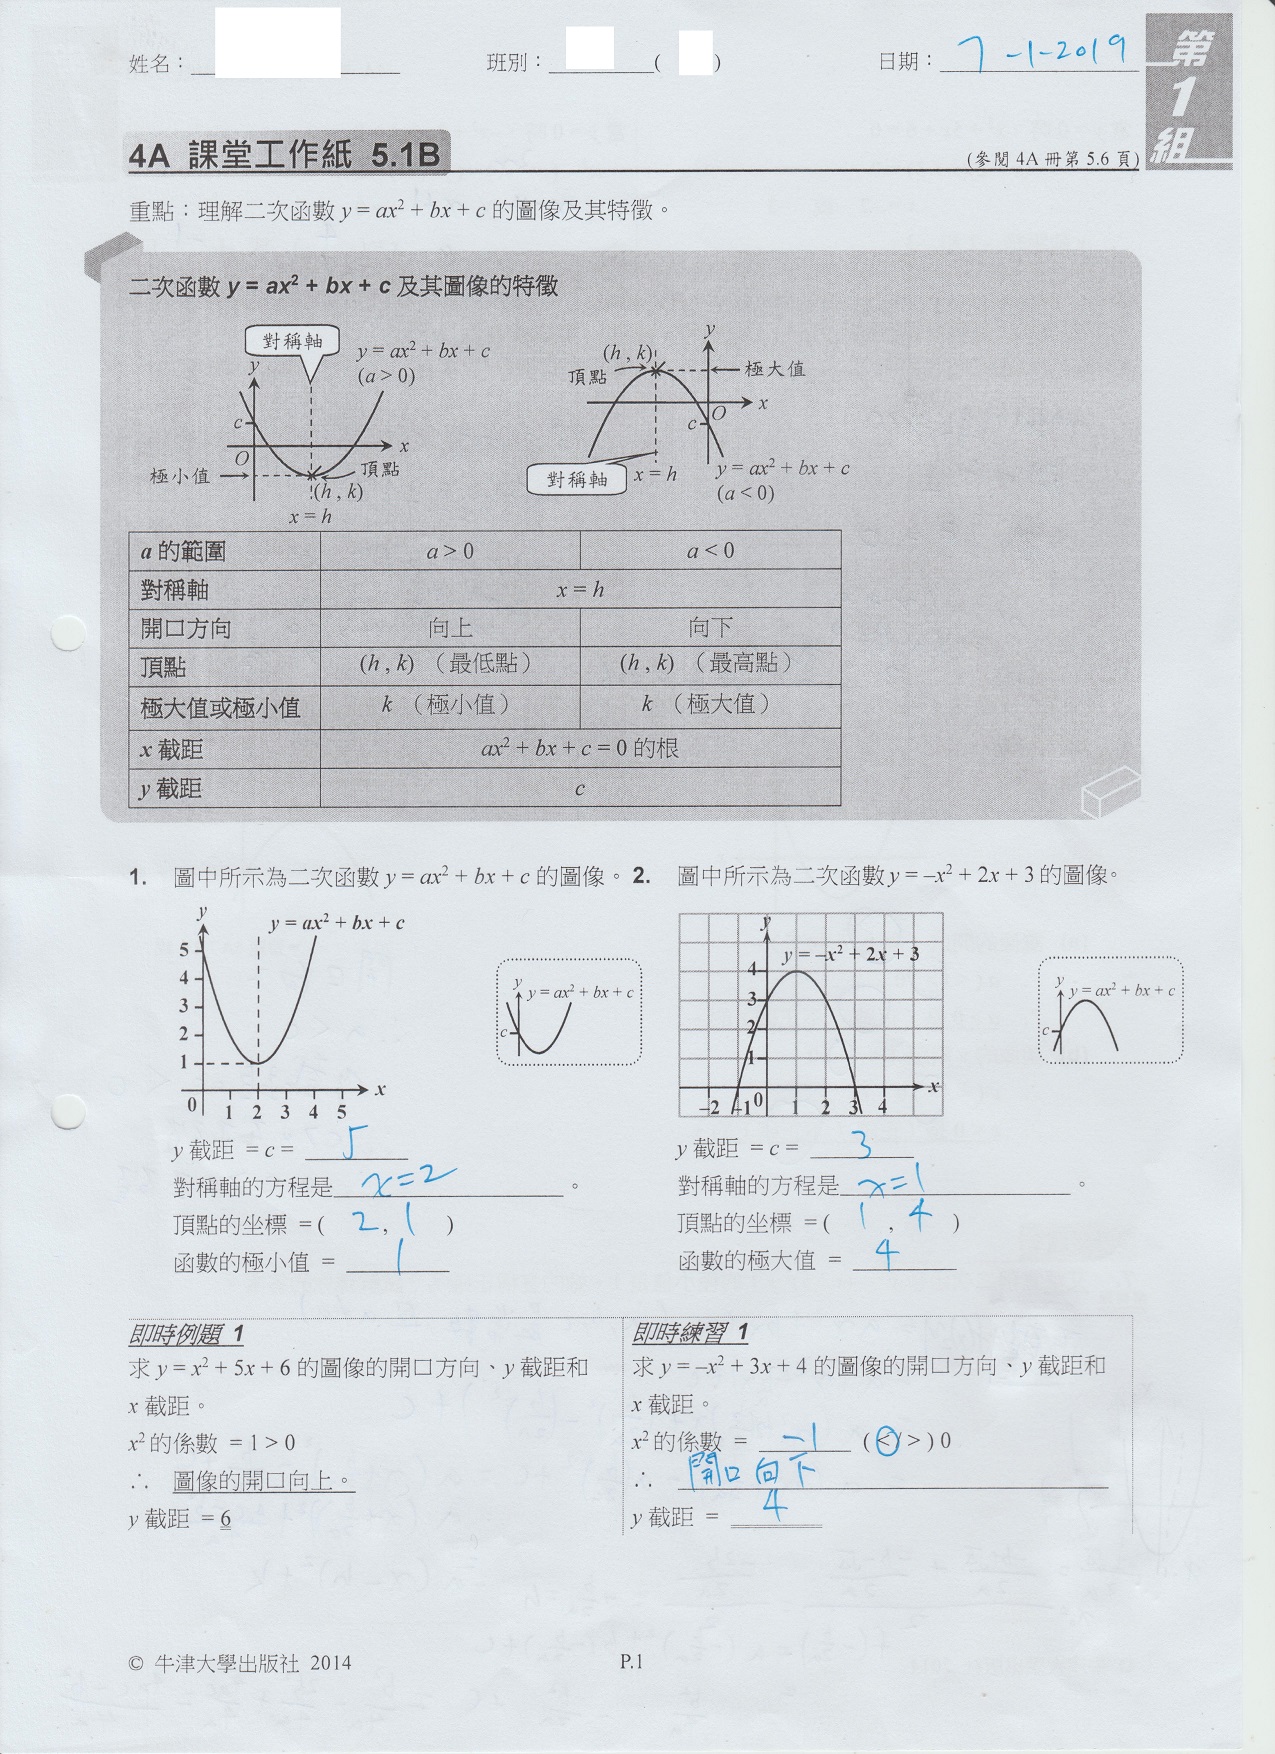 姓名：
班別： ( )
日期： 7-1-2019
第1組
4A 課堂工作紙 5.1B
(參閱 4A 冊第 5.6 頁)
重點：理解二次函數 y = ax² + bx + c 的圖像及其特徵。
二次函數 y = ax² + bx + c 及其圖像的特徵
對稱軸
y = ax² + bx + c
(a > 0)
y
c
O
x
極小值
頂點
(h , k)
x = h
y
(h , k)
頂點
極大值
x
O
c
對稱軸
x = h
y = ax² + bx + c
(a < 0)
a 的範圍 a > 0 a < 0
對稱軸 x = h
開口方向 向上 向下
頂點 (h , k) （最低點） (h , k) （最高點）
極大值或極小值 k （極小值） k （極大值）
x 截距 ax² + bx + c = 0 的根
y 截距 c
1. 圖中所示為二次函數 y = ax² + bx + c 的圖像。
y
y = ax² + bx + c
5
4
3
2
1
0 1 2 3 4 5 x
y
y = ax² + bx + c
c
y 截距 = c = 5
對稱軸的方程是 x=2 。
頂點的坐標 =( 2 , 1 )
函數的極小值 = 1
2. 圖中所示為二次函數 y = –x² + 2x + 3 的圖像。
y
y = –x² + 2x + 3
4
3
2
1
–2 –1 0 1 2 3 4 x
y
y = ax² + bx + c
c
y 截距 = c = 3
對稱軸的方程是 x=1 。
頂點的坐標 =( 1 , 4 )
函數的極大值 = 4
即時例題 1
求 y = x² + 5x + 6 的圖像的開口方向、y 截距和
x 截距。
x² 的係數 = 1 > 0
∴ 圖像的開口向上。
y 截距 = 6
即時練習 1
求 y = –x² + 3x + 4 的圖像的開口方向、y 截距和
x 截距。
x² 的係數 = -1 ( < / > ) 0
∴ 開口向下
y 截距 = 4
© 牛津大學出版社 2014
P.1